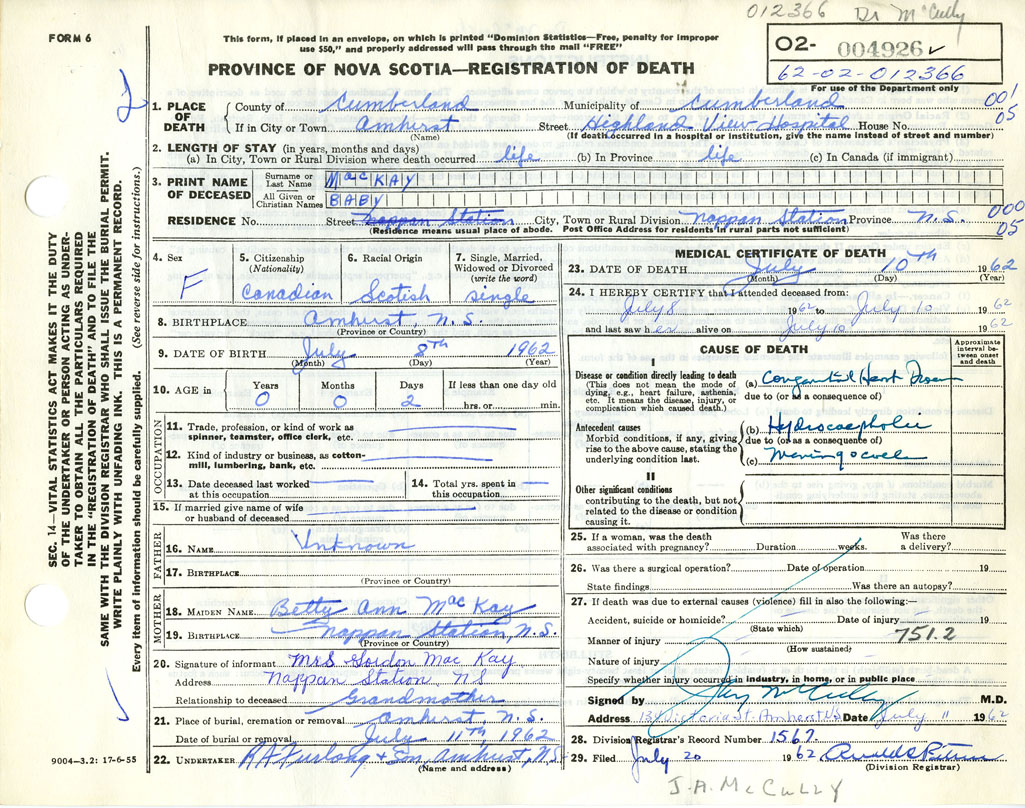 012366 Dr McCully
FORM 6
This form, if placed in an envelope, on which is printed "Dominion Statistics—Free, penalty for improper
use $50," and properly addressed will pass through the mail "FREE"
PROVINCE OF NOVA SCOTIA—REGISTRATION OF DEATH
O2- 004926
62-02-012366
For use of the Department only
SEC. 14—VITAL STATISTICS ACT MAKES IT THE DUTY
OF THE UNDERTAKER OR PERSON ACTING AS UNDER-
TAKER TO OBTAIN ALL THE PARTICULARS REQUIRED
IN THE "REGISTRATION OF DEATH" AND TO FILE THE
SAME WITH THE DIVISION REGISTRAR WHO SHALL ISSUE THE BURIAL PERMIT.
WRITE PLAINLY WITH UNFADING INK. THIS IS A PERMANENT RECORD.
Every item of information should be carefully supplied. (See reverse side for instructions.)
1. PLACE OF DEATH
County of Cumberland Municipality of Cumberland 001
05
If in City or Town Amherst Street Highland View Hospital House No.
(Name) (If death occurred in a hospital or institution, give the name instead of street and number)
2. LENGTH OF STAY (in years, months and days)
(a) In City, Town or Rural Division where death occurred life (b) In Province life (c) In Canada (if immigrant)
3. PRINT NAME OF DECEASED
Surname or Last Name MacKAY
All Given or Christian Names BABY
RESIDENCE No. Street Nappan Station City, Town or Rural Division Nappan Station Province N.S. 000
05
(Residence means usual place of abode. Post Office Address for residents in rural parts not sufficient)
4. Sex F
5. Citizenship (Nationality) Canadian
6. Racial Origin Scotish
7. Single, Married, Widowed or Divorced (write the word) single
8. BIRTHPLACE Amhurst, N.S.
(Province or Country)
9. DATE OF BIRTH July 8th 1962
(Month) (Day) (Year)
10. AGE in Years 0 Months 0 Days 2 If less than one day old
hrs. or min.
OCCUPATION
11. Trade, profession, or kind of work as
spinner, teamster, office clerk, etc.
12. Kind of industry or business, as cotton-
mill, lumbering, bank, etc.
13. Date deceased last worked at this occupation
14. Total yrs. spent in this occupation
15. If married give name of wife
or husband of deceased
FATHER
16. NAME Unknown
17. BIRTHPLACE
(Province or Country)
MOTHER
18. MAIDEN NAME Betty Ann MacKay
19. BIRTHPLACE Nappan Station, N.S.
(Province or Country)
20. Signature of informant Mrs Gordon Mac Kay
Address Nappan Station, NS
Relationship to deceased Grandmother
21. Place of burial, cremation or removal Amhurst, N.S.
Date of burial or removal July 11th 1962
22. UNDERTAKER R A Furlong & Son, Amhurst, N.S.
(Name and address)
9004—3.2: 17-6-55
MEDICAL CERTIFICATE OF DEATH
23. DATE OF DEATH July 10th 1962
(Month) (Day) (Year)
24. I HEREBY CERTIFY that I attended deceased from:
July 8 1962 to July 10 1962
and last saw her alive on July 10 1962
CAUSE OF DEATH
Approximate interval be-tween onset and death
I
Disease or condition directly leading to death
(This does not mean the mode of
dying, e.g., heart failure, asthenia,
etc. It means the disease, injury, or
complication which caused death.)
(a) Congenital Heart Disease
due to (or as a consequence of)
Antecedent causes
Morbid conditions, if any, giving
rise to the above cause, stating the
underlying condition last.
(b) Hydrocephalic
due to (or as a consequence of)
(c) Meningocoele
II
Other significant conditions
contributing to the death, but not
related to the disease or condition
causing it.
25. If a woman, was the death
associated with pregnancy? Duration weeks. Was there
a delivery?
26. Was there a surgical operation? Date of operation 19
State findings Was there an autopsy?
27. If death was due to external causes (violence) fill in also the following:—
Accident, suicide or homicide? Date of injury 19
(State which)
Manner of injury 751.2
(How sustained)
Nature of injury
Specify whether injury occurred in industry, in home, or in public place
Signed by Jay McCully M.D.
Address 134 Victoria St. Amherst NS Date July 11 1962
28. Division Registrar's Record Number 1567
29. Filed July 20 1962
(Division Registrar)
J.A. McCULLY